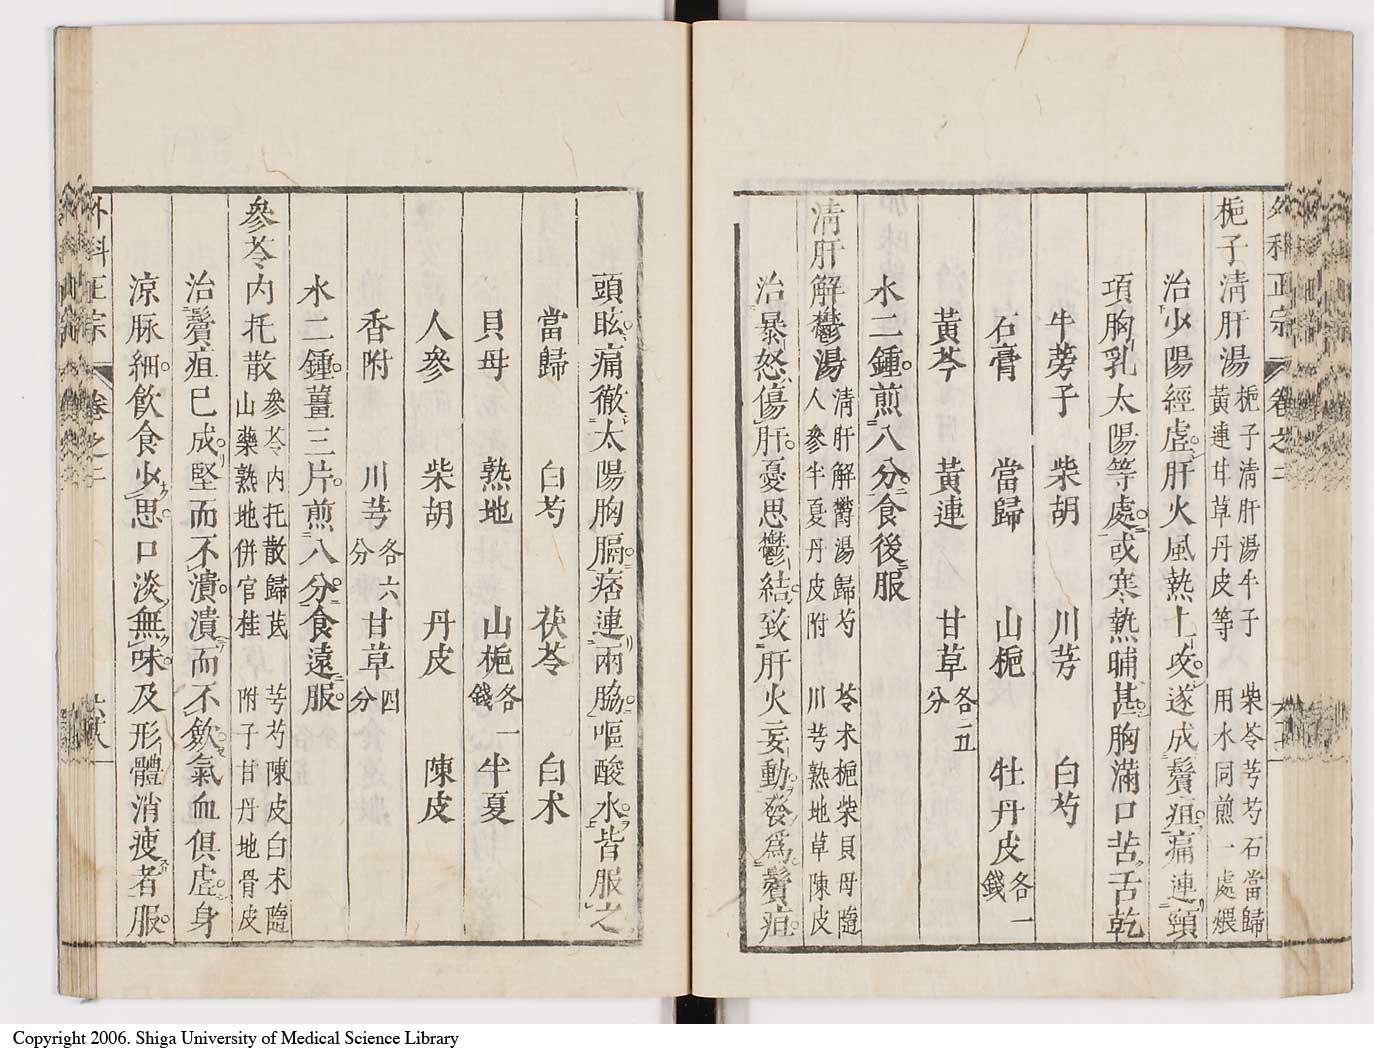 外科正宗 卷之二
梔子清肝湯 梔子清肝湯牛子 柴苓芎芍石當歸 黃連甘草丹皮等 用水同煎一處煨
治少陽經虛肝火風熱上攻遂成鬢疽痛連頸
項胸乳太陽等處或寒熱晡甚胸滿口苦舌乾
牛蒡子 柴胡 川芎 白芍
石膏 當歸 山梔 牡丹皮各一錢
黃芩 黃連 甘草各二五分
水二鍾煎八分食後服
清肝解鬱湯 清肝解鬱湯歸芍 苓术梔柴貝母隨 人參半夏丹皮附 川芎熟地草陳皮
治暴怒傷肝憂思鬱結致肝火妄動發爲鬢疽
頭眩痛徹太陽胸膈痞連兩脇嘔酸水皆服之
當歸 白芍 茯苓 白术
貝母 熟地 山梔各一錢 半夏
人參 柴胡 丹皮 陳皮
香附 川芎各六分 甘草四分
水二鍾薑三片煎八分食遠服
參苓内托散 參苓内托散歸芪 芎芍陳皮白术隨 山藥熟地併官桂 附子甘丹地骨皮
治鬢疽已成堅而不潰潰而不斂氣血俱虛身
凉脉細飮食少思口淡無味及形體消瘦者服
外科正宗 卷之二